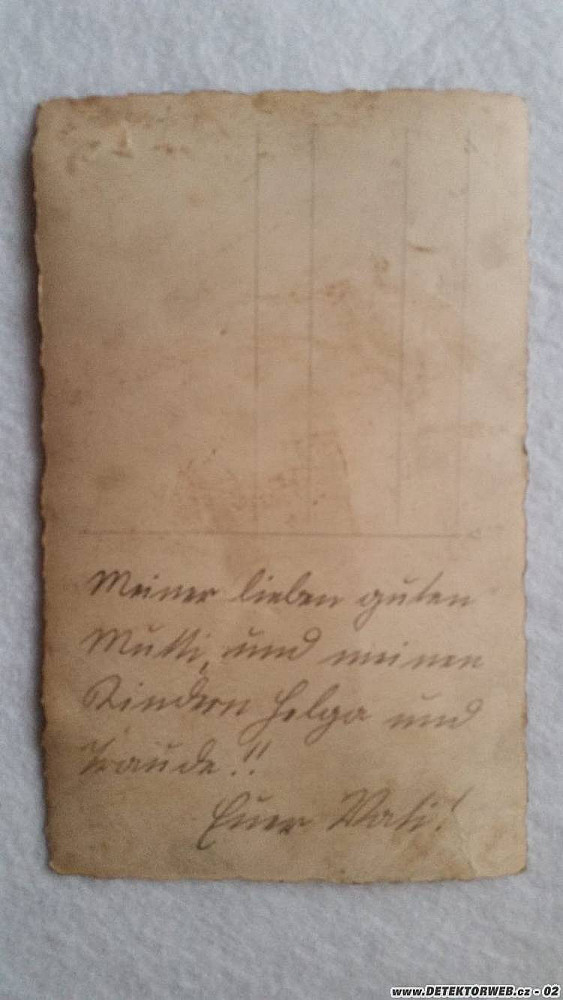 Meiner lieben guten
Mutti, und meinen
Kindern Helga und
Traude!!
Euer Vati!
www.DETEKTORWEB.cz - 02